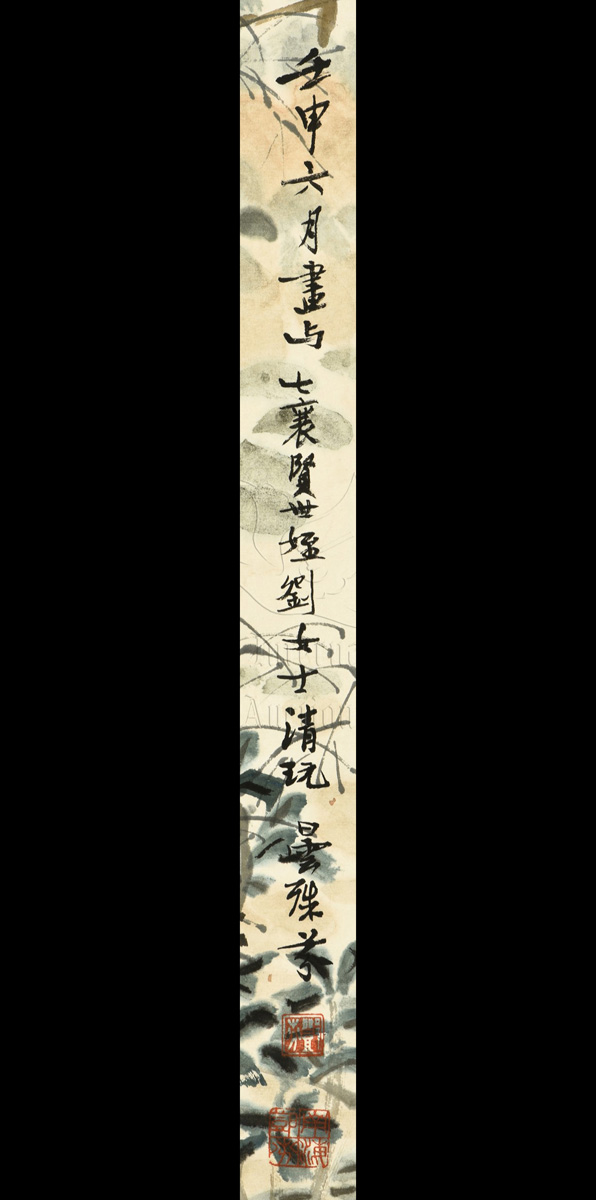 壬申六月畫与七襄賢世姪劉女士清玩 曇殊芬